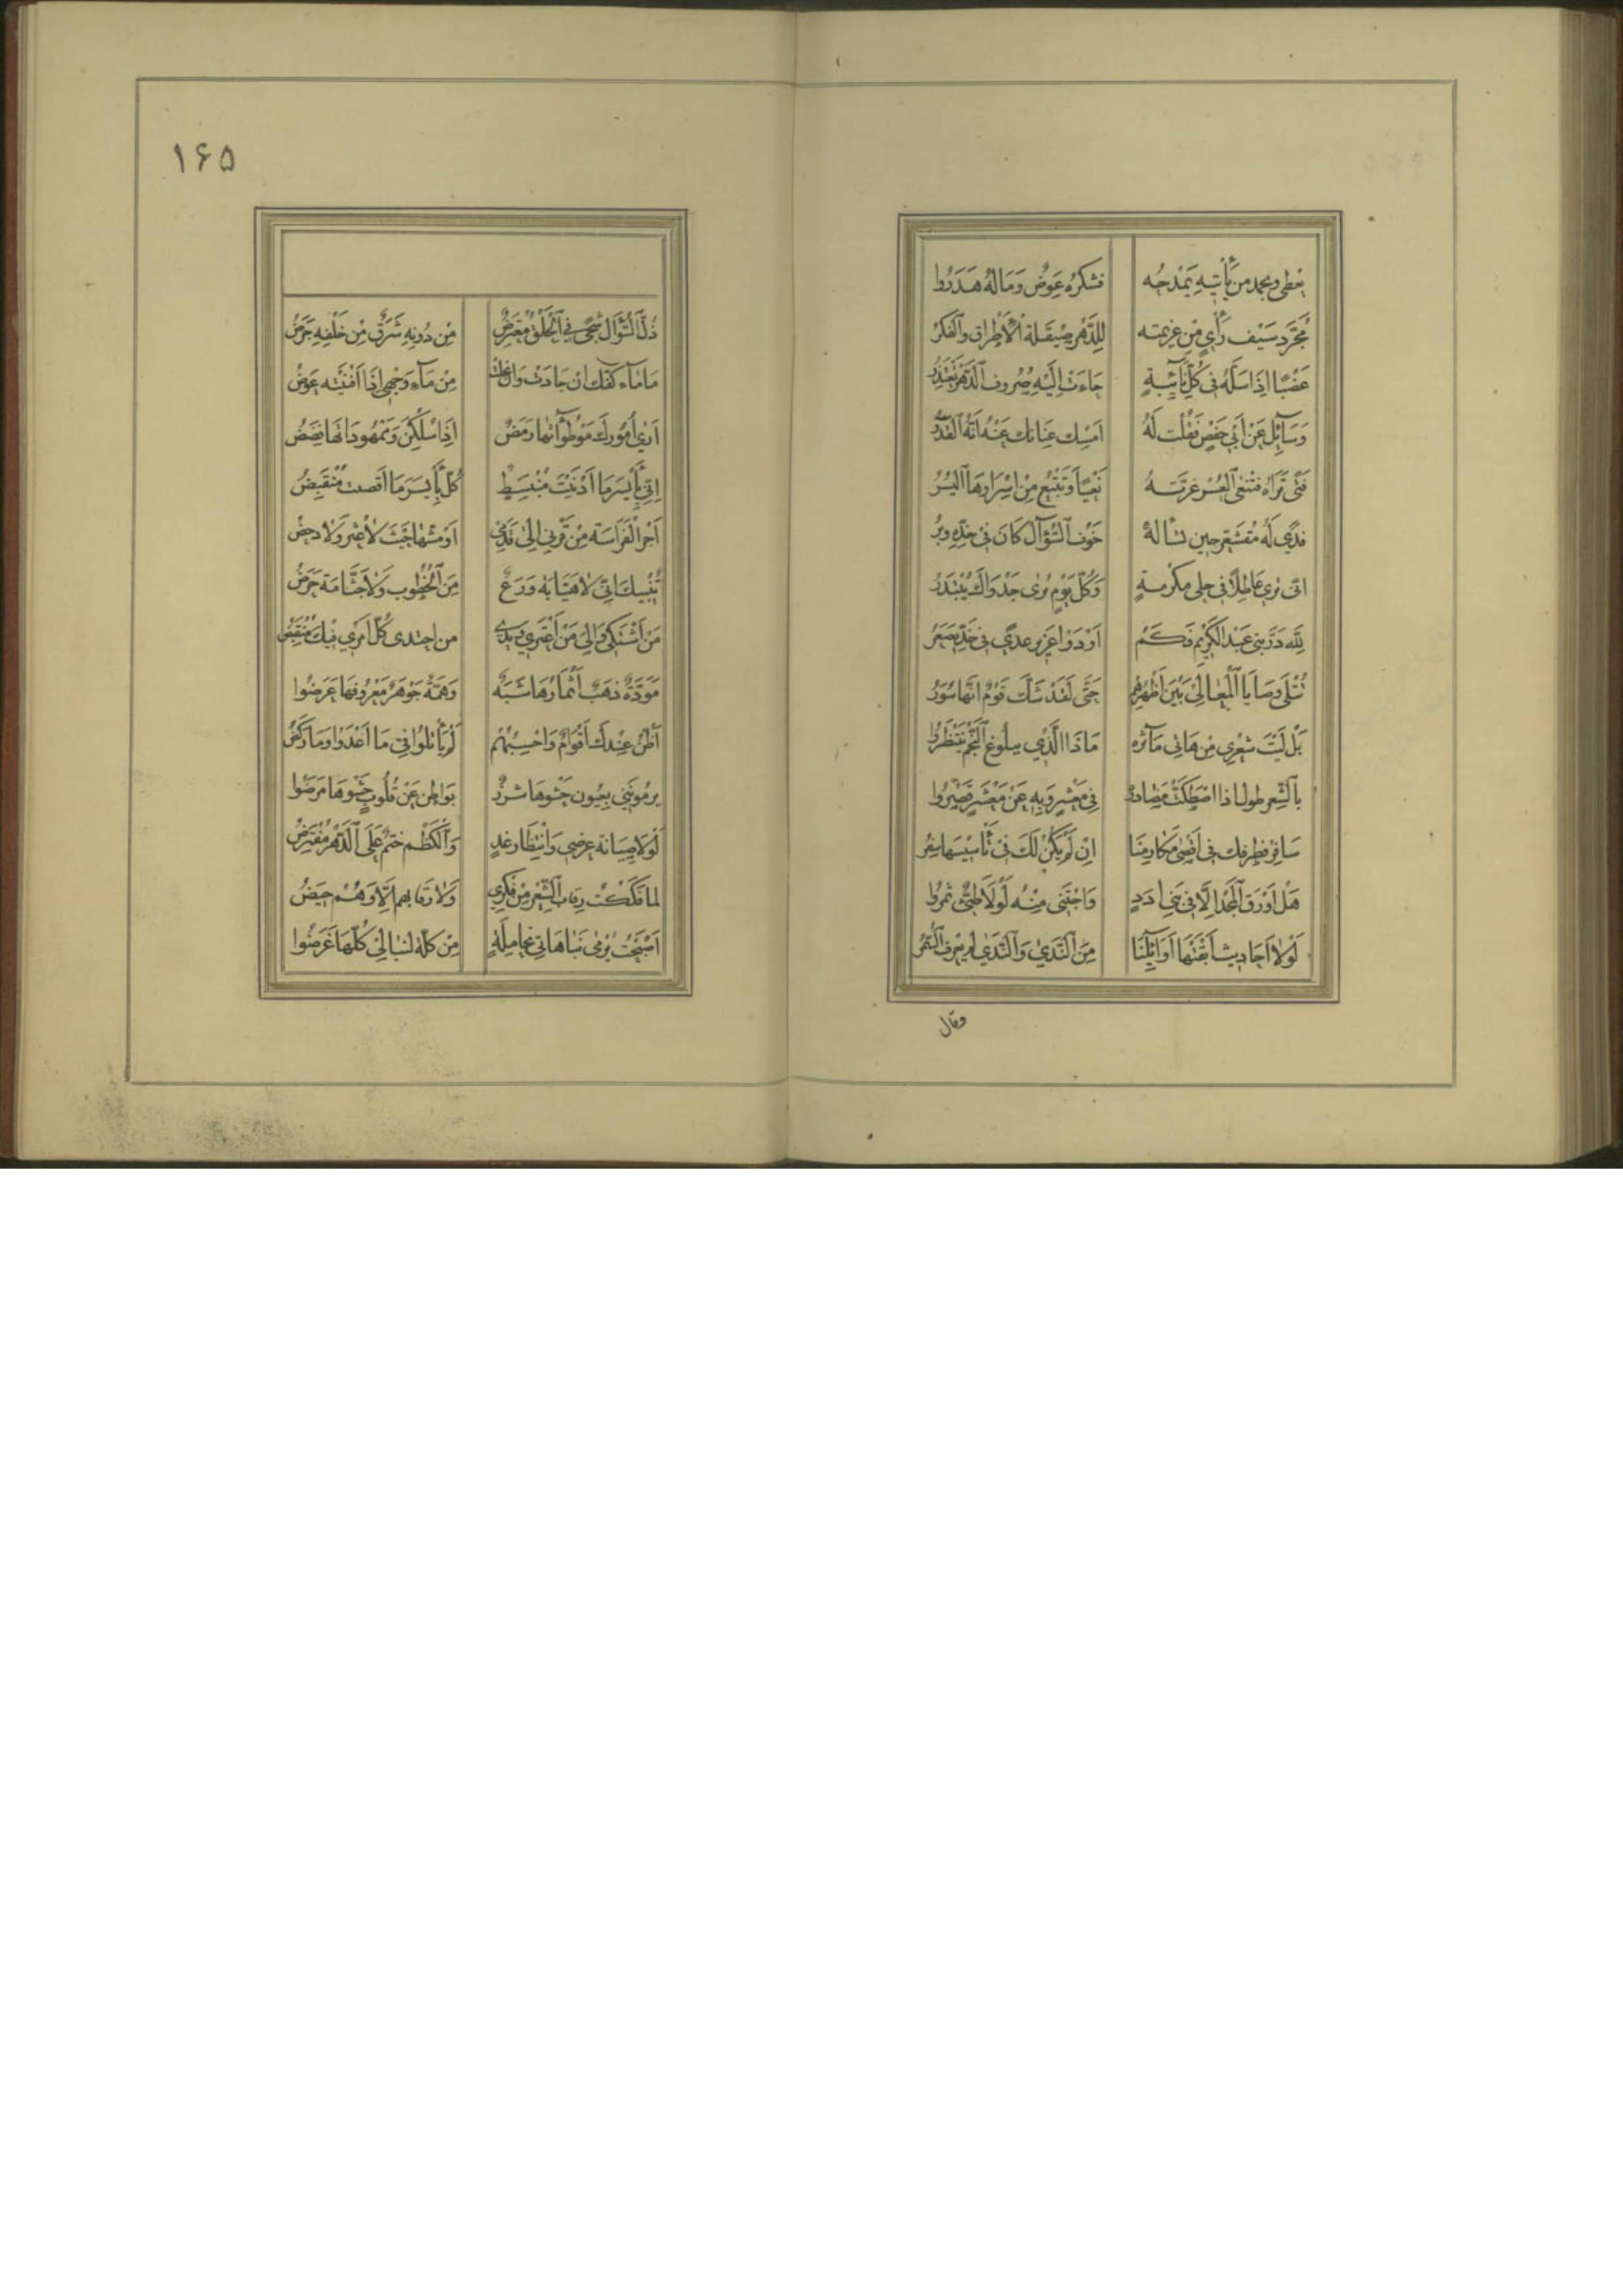 يعطي ويحمد من يأتيه يمدحه فشكره عوض وماله هدروا
مجرد سيف رأي من عزيمته للدهر صيقلة الأطراق والفكر
عضبا اذا سله في كل نائبة جاءت اليه صروف الدهر تعتذر
وسائل عن أبي حفص فقلت له امسك عنانك عنه انه القدر
فتى تراه فتنفي العسر غرته نعيا وتنبع من اسرارها اليسر
فدى له مقشعر حين تسأله خوف السؤال كان في جلده وبر
انى ترى عاطلا في حلى مكرمة وكل يوم ترى جدواك يبتدر
لله در بني عبد الكريم فكم اردوا عزيز عدى في خده صعر
تتلى وصايا المعالي بين اظهرهم حتى لقد شك قوم انها سور
بل ليت شعري من هاتى مآثره ماذا الذي ببلوغ النجم ينتظروا
بالشعر طول اذا اصطكت قصائده في معشر وبه عن معشر قصروا
سافر بطرفك في اقصى مكارمنا ان لم يكن لك في تأسيسها سفر
هل اورق المجد الا في بني ادد واجتنى منه لولا طيئ ثمروا
لولا احاديث ابقتها اوائلنا من الندى والندى لم يعرف السمر
وقال
١۶۵
ذل السؤال شجى في الحلق معترض من دونه شرق من خلفه جرض
ما ماء كفك ان جادت وان بخلت من ماء وجهي اذا افنيته عوض
ارى امورك موطوآتها رمض اذا سلكن وممهوداتها قضض
اني بأيسر ما ادنيت منبسط كل بأيسر ما اقصت منقبض
اجر الفراسة من قرني الى قدمي او مشها حيث لا عثر ولا دحض
تنبيك اني لا هيابة ورع من الخطوب ولا جثامة حرض
من اشتكي والى من اعتزي من اجتدى كل امري فيك منتقض
مودة ذهب اثمارها شبه وهمة جوهر معروفها عرضوا
اظن عندك اقوام واحسبهم لم يأتلوا في ما اعدوا وما ركضوا
يرمونني بعيون حشوها شزر بواطن عن قلوب حشوها مرضوا
لولا صيانة عرضي وانتظار غد والكظم حتم على الدهر مفترض
لما فككت رقاب الشعر من فكري ولا رقابهم الا وهم حيض
اصبحت يرمى نباهاتي بخامله من كله لنبالي كلها غرضوا